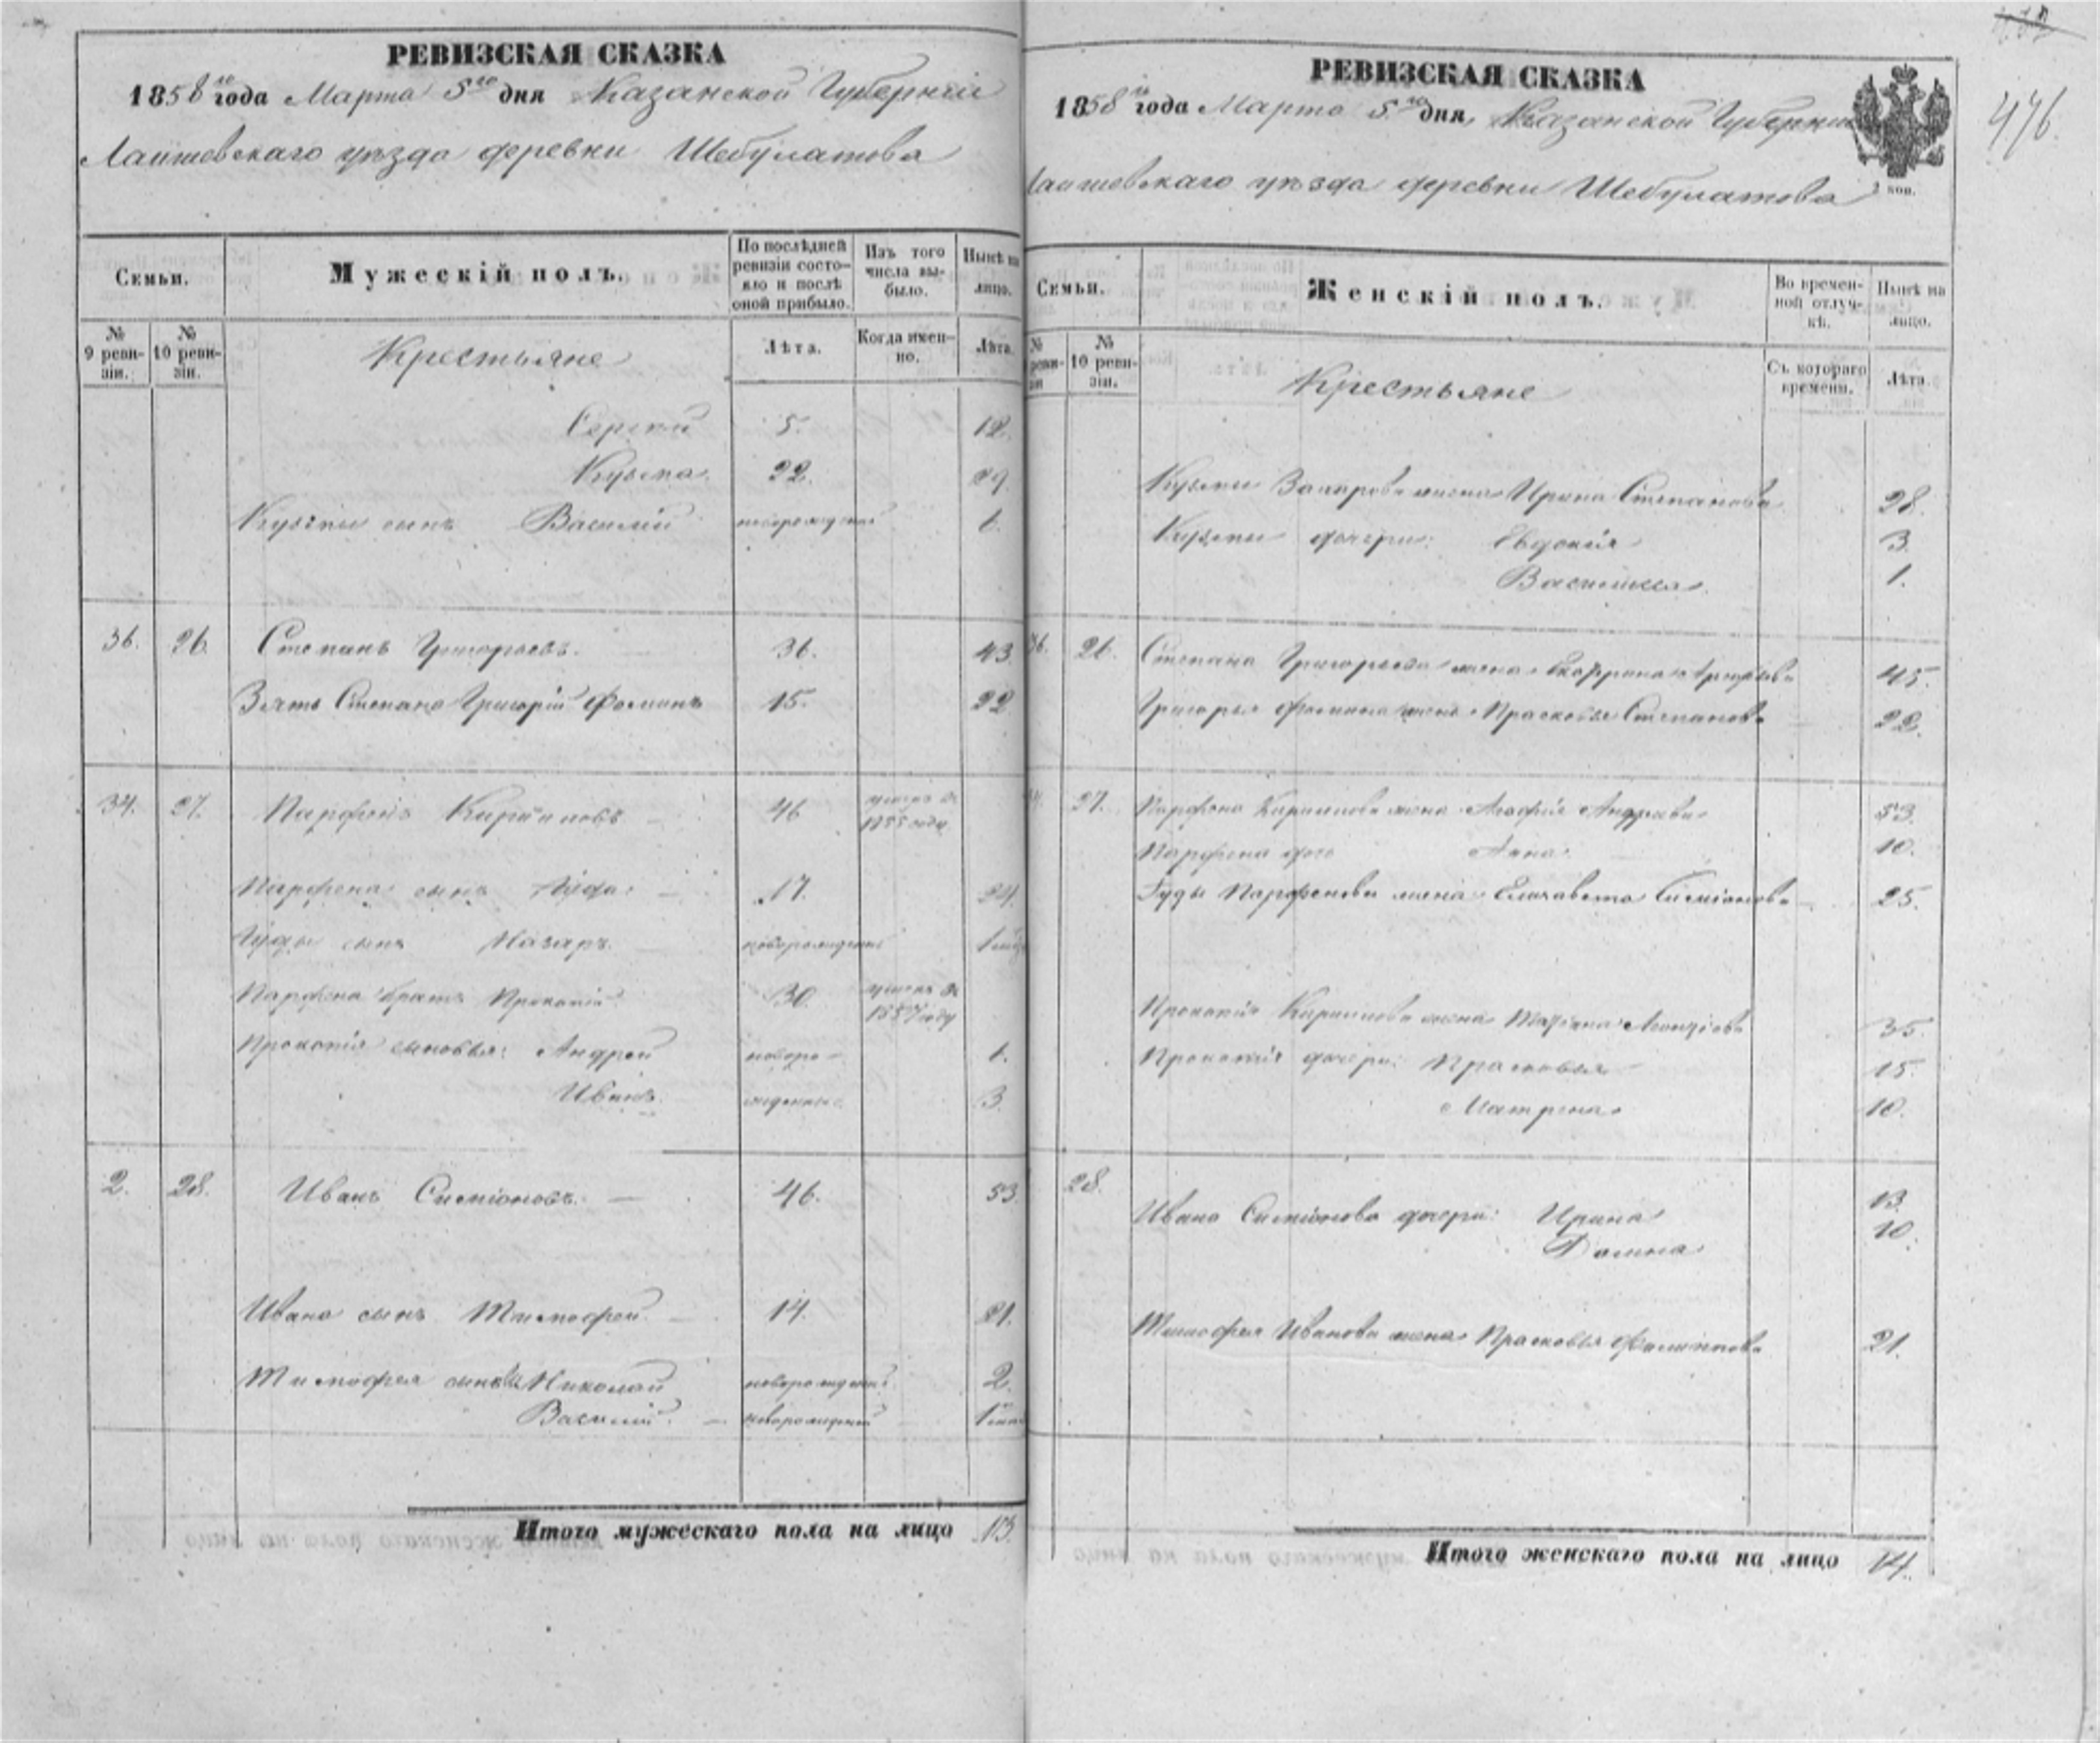 РЕВИЗСКАЯ СКАЗКА
1858го года Марта 5го дня Казанской Губернiи
Лаишевскаго уѣзда деревни Шебулатова
Семьи.
Мужескiй полъ.
По послѣдней ревизiи состо-
яло и послѣ
оной прибыло.
Изъ того
числа вы-
было.
Нынѣ на
лицо.
№
9 реви-
зiи.
№
10 реви-
зiи.
Крестьяне
Лѣта.
Когда имен-
но.
Лѣта.
Сергѣй 5. 12.
Кузьма 22. 29.
Кузьмы сынъ Василiй новорожденный 1.
36. 26. Степанъ Григорьевъ. 36. 43.
Зять Степана Григорiй Фоминъ 15. 22
34. 27. Парфенъ Кириловъ 46 умеръ въ
1855 году
Парфена сынъ Iуда 17. 24.
Iуды сынъ Назаръ новорожденный 1
Парфена братъ Прокопiй 30. умеръ въ
1857 году
Прокопiя сыновья: Андрей новоро- 1.
Иванъ жденные 3.
2. 28. Иванъ Симiоновъ. 46. 53.
Ивана сынъ Тимофей 14. 21.
Тимофея сыновья Николай новорожденный 2.
Василiй. новорожденный 1
Итого мужескаго пола на лицо 13.
476.
РЕВИЗСКАЯ СКАЗКА
1858го года Марта 5го дня Казанской Губернiи
Лаишевскаго уѣзда деревни Шебулатова
коп.
Семьи.
Женскiй полъ.
Во времен-
ной отлуч-
кѣ.
Нынѣ на
лицо.
№
реви-
зiи
№
10 реви-
зiи.
Крестьяне
Съ котораго
времени.
Лѣта.
Кузьмы Захарова жена Ирина Степанова 28.
Кузьмы дочери: Евдокiя 3.
Василиса 1.
36. 26. Степана Григорьева жена Екатерина 45.
Григорья Фомина жена Прасковья Степанова 22.
27. Парфена Кирилова жена Агафiя Андреева 53.
Парфена дочь Анна 10.
Iуды Парфенова жена Елизавета Симiонова 25.
Прокопiя Кирилова жена Татiана 35.
Прокопiя дочери: Прасковья 15.
Матрена 10.
28. Ивана Симiонова дочери: Ирина 13.
Домна 10.
Тимофея Иванова жена Прасковья Филиппова 21.
Итого женскаго пола на лицо 14.